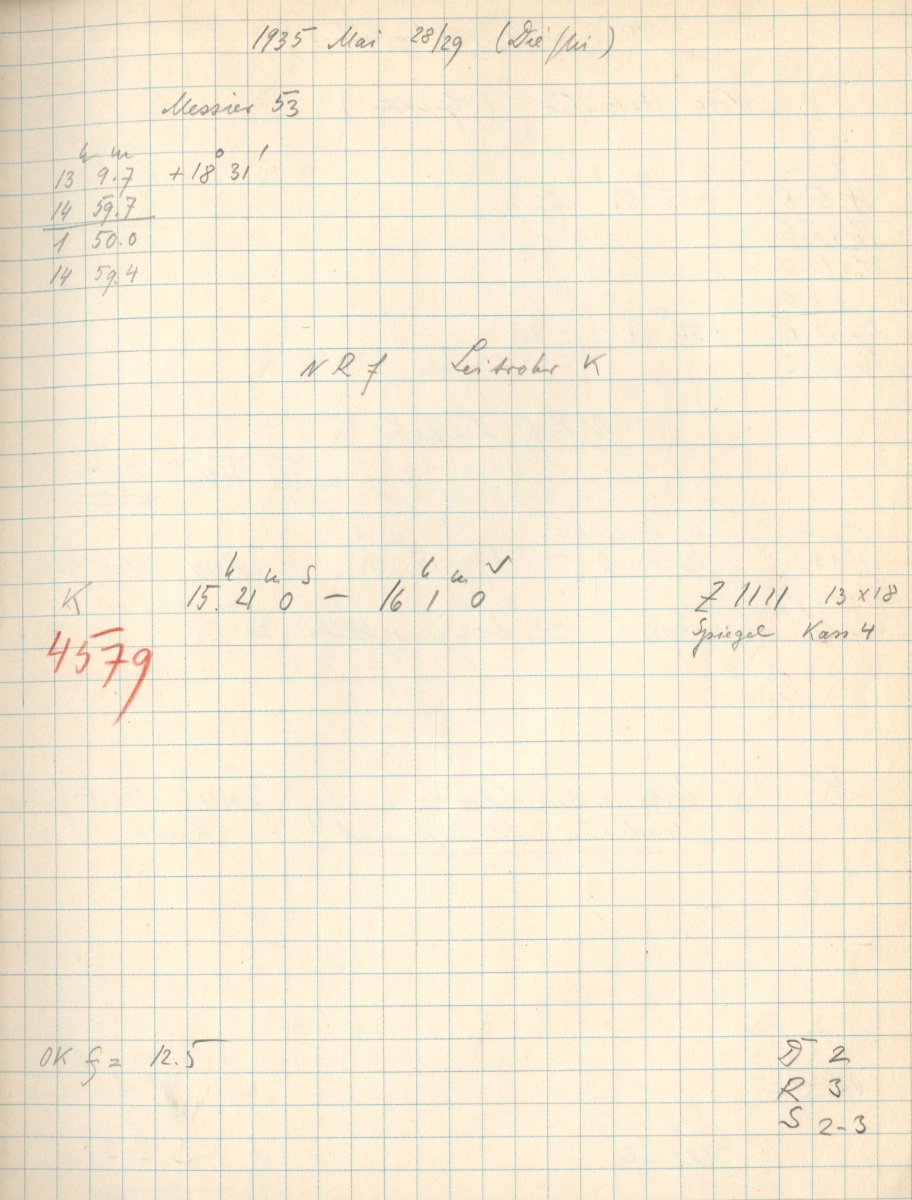 1935 Mai 28/29 (Die/Mi)
Messier 53
h m ° '
13 9.7 +18 31
14 59.7
1 50.0
14 59.4
Leitrohr K
h m s h m s
K 15. 21 0 — 16 1 0 Z 1111 13 x 18
4579 Spiegel Kass. 4
OK = 12.5
D 2
R 3
S 2-3